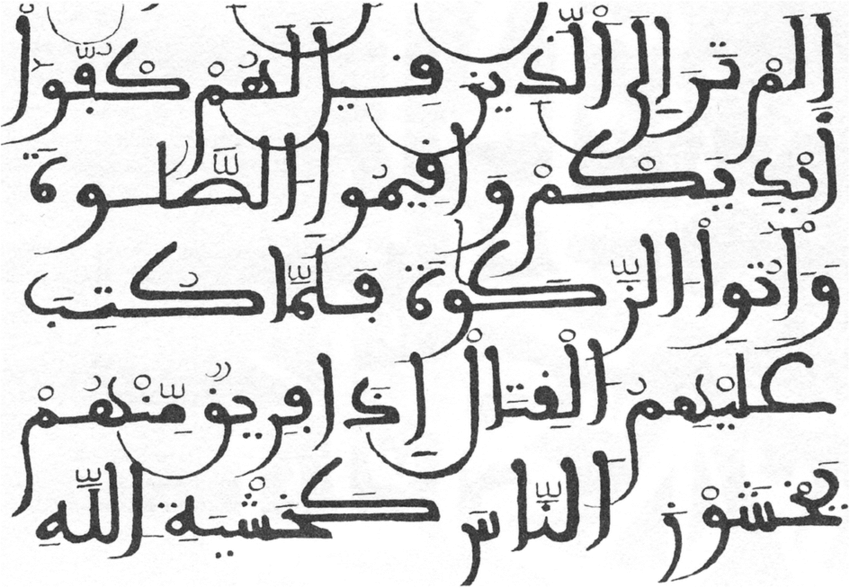 أَلَمْ تَرَ إِلَى ٱلَّذِينَ قِيلَ لَهُمْ كُفُّوٓاْ
أَيْدِيَكُمْ وَأَقِيمُواْ ٱلصَّلَوٰةَ
وَءَاتُواْ ٱلزَّكَوٰةَ فَلَمَّا كُتِبَ
عَلَيْهِمُ ٱلْقِتَالُ إِذَا فَرِيقٌ مِّنْهُمْ
يَخْشَوْنَ ٱلنَّاسَ كَخَشْيَةِ ٱللَّهِ